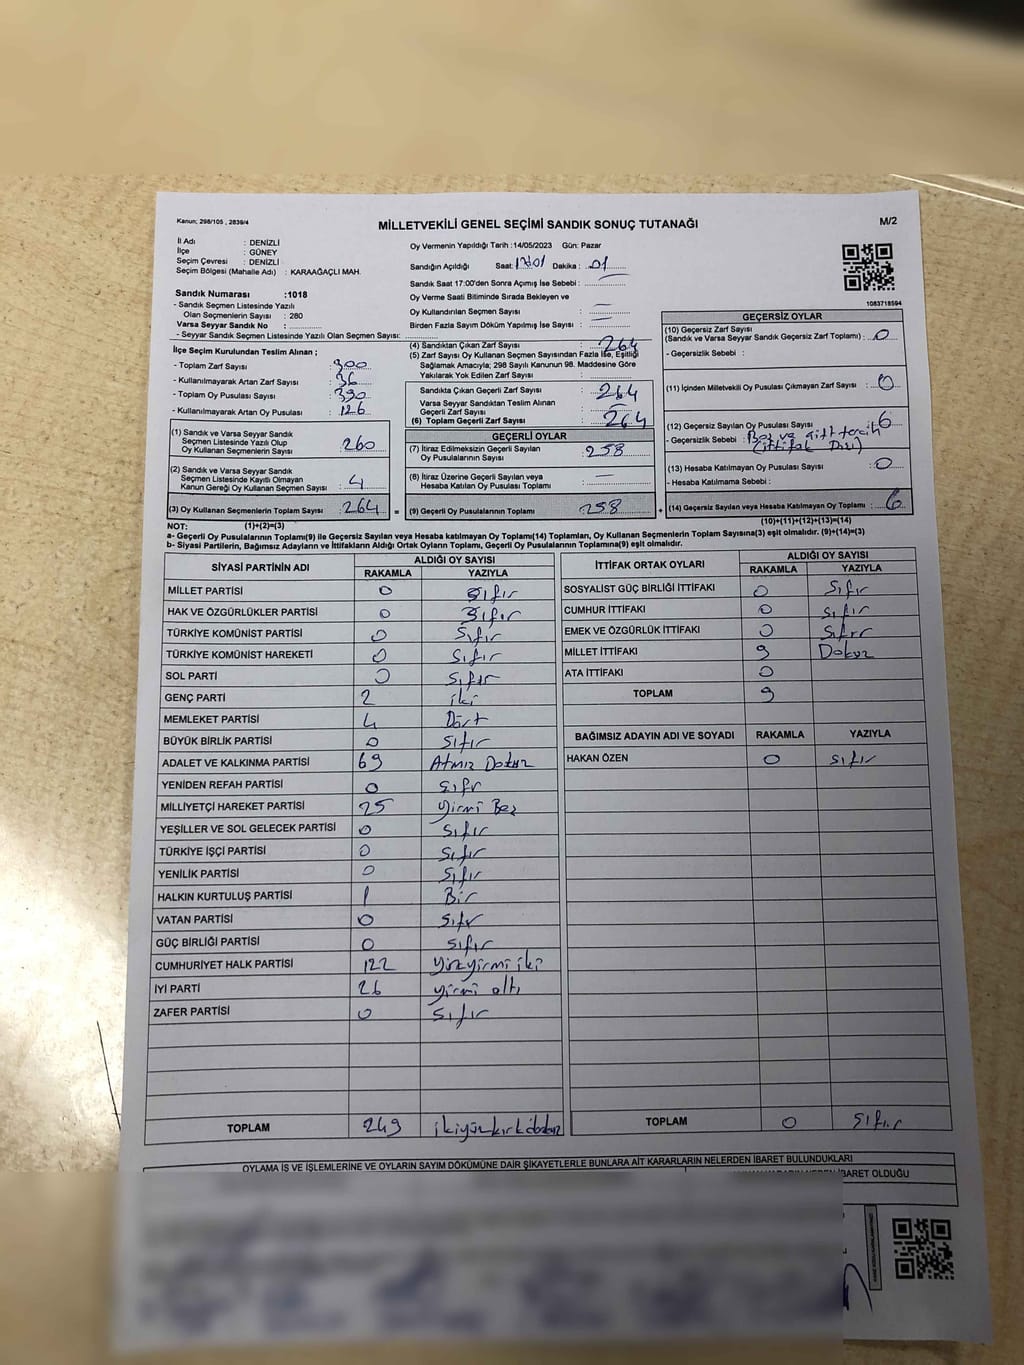 Kanun; 298/105 , 2839/4
MİLLETVEKİLİ GENEL SEÇİMİ SANDIK SONUÇ TUTANAĞI
M/2
İl Adı : DENİZLİ
İlçe : GÜNEY
Seçim Çevresi : DENİZLİ
Seçim Bölgesi (Mahalle Adı) : KARAAĞAÇLI MAH.
Oy Vermenin Yapıldığı Tarih :14/05/2023 Gün: Pazar
Sandığın Açıldığı Saat: Dakika : 01
Sandık Saat 17:00'den Sonra Açılmış İse Sebebi :
Oy Verme Saati Bitiminde Sırada Bekleyen ve
Oy Kullandırılan Seçmen Sayısı : —
Birden Fazla Sayım Döküm Yapılmış İse Sayısı : —
1083718594
Sandık Numarası :1018
- Sandık Seçmen Listesinde Yazılı
Olan Seçmenlerin Sayısı : 280
Varsa Seyyar Sandık No :
- Seyyar Sandık Listesinde Yazılı Olan Seçmen Sayısı:
İlçe Seçim Kurulundan Teslim Alınan ;
- Toplam Zarf Sayısı : 300
- Kullanılmayarak Artan Zarf Sayısı : 36
- Toplam Oy Pusulası Sayısı : 390
- Kullanılmayarak Artan Oy Pusulası : 126
(1) Sandık ve Varsa Seyyar Sandık
Seçmen Listesinde Yazılı Olup
Oy Kullanan Seçmenlerin Sayısı : 260
(2) Sandık ve Varsa Seyyar Sandık
Seçmen Listesinde Kayıtlı Olmayan
Kanun Gereği Oy Kullanan Seçmen Sayısı : 4
(3) Oy Kullanan Seçmenlerin Toplam Sayısı : 264 =
(4) Sandıktan Çıkan Zarf Sayısı : 264
(5) Zarf Sayısı Oy Kullanan Seçmen Sayısından Fazla İse, Eşitliği
Sağlamak Amacıyla; 298 Sayılı Kanunun 98. Maddesine Göre
Yakılarak Yok Edilen Zarf Sayısı :
Sandıkta Çıkan Geçerli Zarf Sayısı : 264
Varsa Seyyar Sandıktan Teslim Alınan
Geçerli Zarf Sayısı : —
(6) Toplam Geçerli Zarf Sayısı : 264
GEÇERLİ OYLAR
(7) İtiraz Edilmeksizin Geçerli Sayılan
Oy Pusulalarının Sayısı : 258
(8) İtiraz Üzerine Geçerli Sayılan veya
Hesaba Katılan Oy Pusulası Toplamı : —
(9) Geçerli Oy Pusulalarının Toplamı : 258 +
GEÇERSİZ OYLAR
(10) Geçersiz Zarf Sayısı
(Sandık ve Varsa Seyyar Sandık Geçersiz Zarf Toplamı) : 0
- Geçersizlik Sebebi :
(11) İçinden Milletvekili Oy Pusulası Çıkmayan Zarf Sayısı : 0
(12) Geçersiz Sayılan Oy Pusulası Sayısı : 6
- Geçersizlik Sebebi : Boş ve çift tercih
(ittifak Dışı)
(13) Hesaba Katılmayan Oy Pusulası Sayısı : 0
- Hesaba Katılmama Sebebi :
(14) Geçersiz Sayılan veya Hesaba Katılmayan Oy Toplamı : 6
NOT: (1)+(2)=(3)
(10)+(11)+(12)+(13)=(14)
a- Geçerli Oy Pusulalarının Toplamı(9) ile Geçersiz Sayılan veya Hesaba katılmayan Oy Toplamı(14) Toplamları, Oy Kullanan Seçmenlerin Toplam Sayısına(3) eşit olmalıdır. (9)+(14)=(3)
b- Siyasi Partilerin, Bağımsız Adayların ve İttifakların Aldığı Ortak Oyların Toplamı, Geçerli Oy Pusulalarının Toplamına(9) eşit olmalıdır.
SİYASİ PARTİNİN ADI ALDIĞI OY SAYISI
RAKAMLA YAZIYLA
MİLLET PARTİSİ 0 Sıfır
HAK VE ÖZGÜRLÜKLER PARTİSİ 0 Sıfır
TÜRKİYE KOMÜNİST PARTİSİ 0 Sıfır
TÜRKİYE KOMÜNİST HAREKETİ 0 Sıfır
SOL PARTİ 0 Sıfır
GENÇ PARTİ 2 iki
MEMLEKET PARTİSİ 4 Dört
BÜYÜK BİRLİK PARTİSİ 0 Sıfır
ADALET VE KALKINMA PARTİSİ 69 Atmış Dokuz
YENİDEN REFAH PARTİSİ 0 sıfr
MİLLİYETÇİ HAREKET PARTİSİ 25 yirmi Beş
YEŞİLLER VE SOL GELECEK PARTİSİ 0 Sıfır
TÜRKİYE İŞÇİ PARTİSİ 0 Sıfır
YENİLİK PARTİSİ 0 Sıfır
HALKIN KURTULUŞ PARTİSİ 1 Bir
VATAN PARTİSİ 0 Sıfr
GÜÇ BİRLİĞİ PARTİSİ 0 Sıfır
CUMHURİYET HALK PARTİSİ 122 yüzyirmi iki
İYİ PARTİ 26 yirmi altı
ZAFER PARTİSİ 0 Sıfır
TOPLAM 249 ikiyüzkırkdokuz
İTTİFAK ORTAK OYLARI ALDIĞI OY SAYISI
RAKAMLA YAZIYLA
SOSYALİST GÜÇ BİRLİĞİ İTTİFAKI 0 Sıfır
CUMHUR İTTİFAKI 0 sıfır
EMEK VE ÖZGÜRLÜK İTTİFAKI 0 Sıfır
MİLLET İTTİFAKI 9 Dokuz
ATA İTTİFAKI 0
TOPLAM 9
BAĞIMSIZ ADAYIN ADI VE SOYADI RAKAMLA YAZIYLA
HAKAN ÖZEN 0 sıfır
TOPLAM 0 Sıfır
OYLAMA İŞ VE İŞLEMLERİNE VE OYLARIN SAYIM DÖKÜMÜNE DAİR ŞİKAYETLERLE BUNLARA AİT KARARLARIN NELERDEN İBARET BULUNDUKLARI
İBARET OLDUĞU